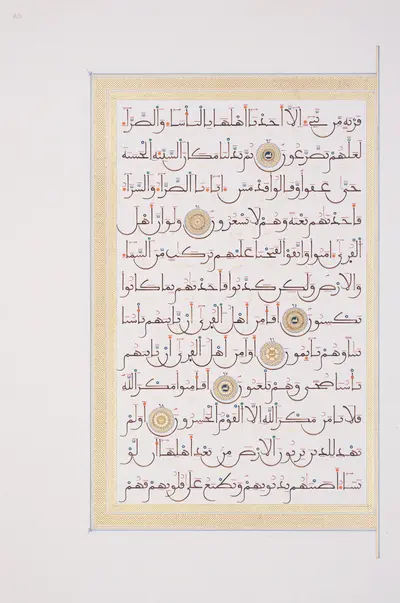 قرية من نبيء الا اخذنا اهلها بالباساء والضراء
لعلهم يضرعون ثم بدلنا مكان السيئة الحسنة
حتى عفوا وقالوا قد مس ءاباءنا الضراء والسراء
فاخذنهم بغتة وهم لا يشعرون ولو ان اهل
القرى ءامنوا واتقوا لفتحنا عليهم بركت من السماء
والارض ولكن كذبوا فاخذنهم بما كانوا
يكسبون افامن اهل القرى ان ياتيهم باسنا
بيتا وهم نايمون اوامن اهل القرى ان ياتيهم
باسنا ضحى وهم يلعبون افامنوا مكر الله
فلا يامن مكر الله الا القوم الخسرون اولم
يهد للذين يرثون الارض من بعد اهلها ان لو
نشاء اصبنهم بذنوبهم ونطبع على قلوبهم فهم